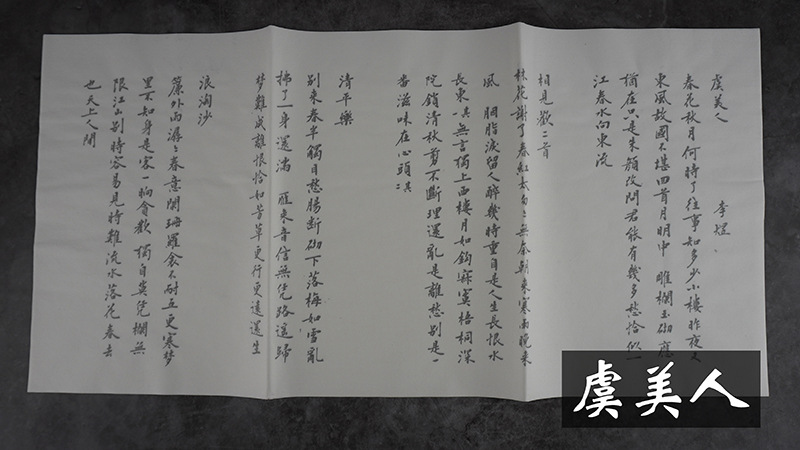 虞美人 李煜
春花秋月何時了往事知多少小樓昨夜又
東風故國不堪回首月明中 雕欄玉砌應
猶在只是朱顏改問君能有幾多愁恰似一
江春水向東流
相見歡二首
林花謝了春紅太匆〻無奈朝來寒雨晚來
風 胭脂淚留人醉幾時重自是人生長恨水
長東 無言獨上西樓月如鉤寂寞梧桐深
院鎖清秋剪不斷理還亂是離愁別是一
番滋味在心頭
清平樂
別來春半觸目愁腸斷砌下落梅如雪亂
拂了一身還滿 雁來音信無凭路遙歸
夢難成離恨恰如芳草更行更遠還生
浪淘沙
簾外雨潺〻春意闌珊羅衾不耐五更寒夢
里不知身是客一晌貪歡 獨自莫凭欄無
限江山別時容易見時難流水落花春去
也天上人間
虞美人